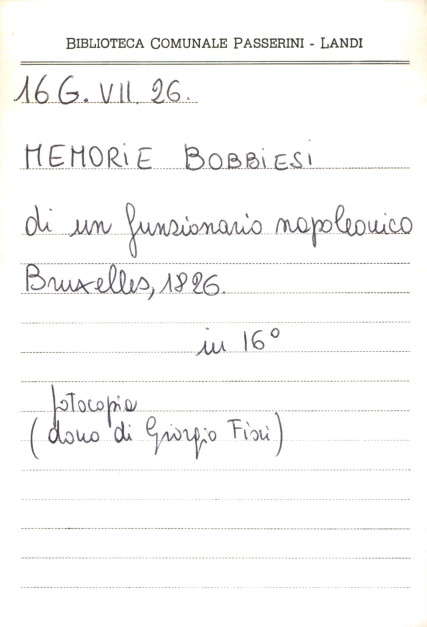 BIBLIOTECA COMUNALE PASSERINI - LANDI
16 G. VII. 26.
MEMORIE BOBBIESI
di un funzionario napoleonico
Bruxelles, 1826.
in 16°
fotocopia
(dono di Giorgio Fiori)